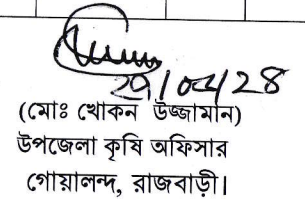 ২৭/০৫/২৪
(মোঃ খোকন উজ্জামান)
উপজেলা কৃষি অফিসার
গোয়ালন্দ, রাজবাড়ী।